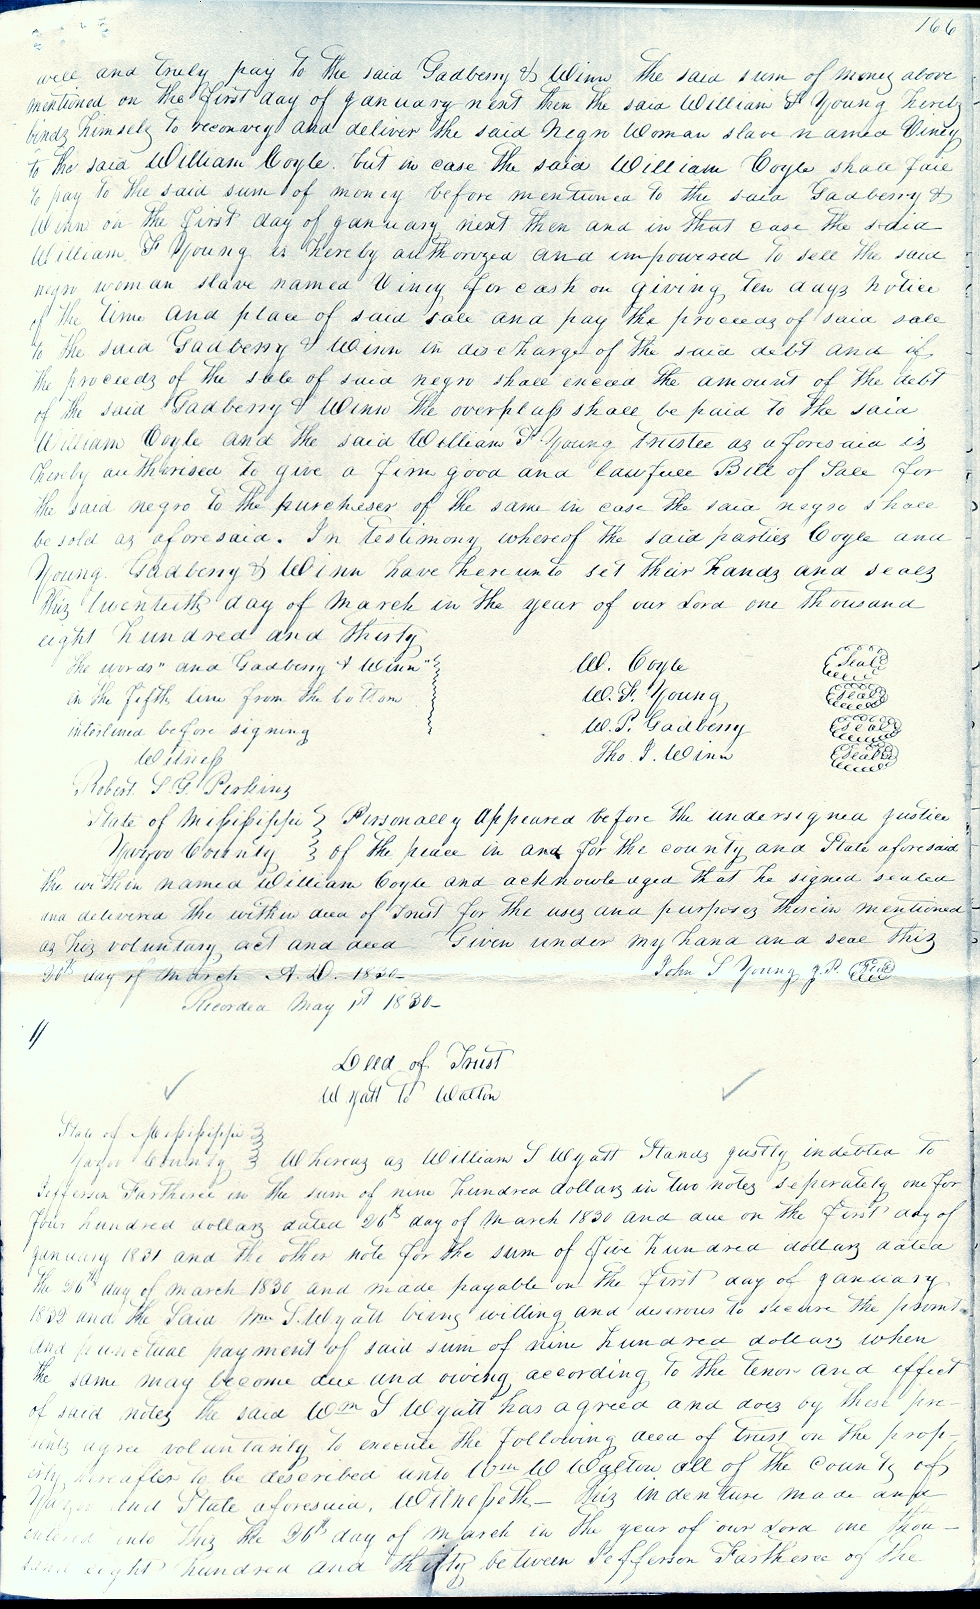 166
will and truly pay to the said Gadberry & Winn the said sum of money above
mentioned on the first day of January next then the said William F Young hereby
bindz himself to reconvey and deliver the said Negro Woman slave named Viney
to the said William Coyle. but in case the said William Coyle shall fail
to pay to the said sum of money before mentioned to the said Gadberry &
Winn on the first day of January next then and in that case the said
William F Young is hereby authorozed and impowered to sell the said
negro woman slave named Viney for cash on giving ten dayz notice
of the time and place of said sale and pay the proceedz of said sale
to the said Gadberry & Winn in discharge of the said debt and if
the proceedz of the sale of said negro shall exceed the amount of the debt
of the said Gadberry & Winn the overpluss shall be paid to the said
William Coyle and the said William F Young trustee az aforesaid is
hereby authorised to give a firm good and lawfull Bill of Sale for
the said negro to the purcheser of the same in case the said negro shall
be sold az aforesaid. In testimony whereof the said partiez Coyle and
Young. Gadberry & Winn have hereunto set their handz and sealz
this twentieth day of March in the year of our Lord one thousand
eight hundred and thirty
the words "and Gadberry & Winn"
in the fifth line from the bottom
interlined before signing
Witness
Robert S G Perkinz
W. Coyle Seal
W. F. Young Seal
W. P. Gadberry Seal
Tho. J. Winn Seal
State of Mississippi } Personally appeared before the undersigned justice
Yazoo County } of the peace in and for the county and State aforesaid
the within named William Coyle and acknowledged that he signed sealed
and delivered the within deed of Trust for the usez and purposez therein mentioned
az hiz voluntary act and deed Given under my hand and seal thiz
20th day of March A.D. 1830 John S Young J.P. Seal
Recorded May 1st 1830
Deed of Trust
Wyatt to Walton
State of Mississippi }
Yazoo County } Whereaz az William S Wyatt Standz justly indebted to
Jefferson Fartheree in the sum of nine hundred dollarz in two notez seperately one for
four hundred dollarz dated 26th day of March 1830 and due on the first day of
January 1831 and the other note for the sum of five hundred dollarz dated
the 26th day of March 1830 and made payable on the first day of January
1832 and the Said Wm S. Wyatt being willing and desirous to secure the promt
and punctual payment of said sum of nine hundred dollarz when
the same may become due and owing according to the tenor and effect
of said notez the said Wm S Wyatt has agreed and doez by these pre-
sentz agree voluntarily to execute the following deed of trust on the prop-
erty hereafter to be described unto Wm W Walton all of the county of
Yazoo and State aforesaid. Witnesseth— Thiz indenture made and
entered into thiz the 26th day of March in the year of our Lord one thou-
sand eight hundred and thirty between Jefferson Fartheree of the